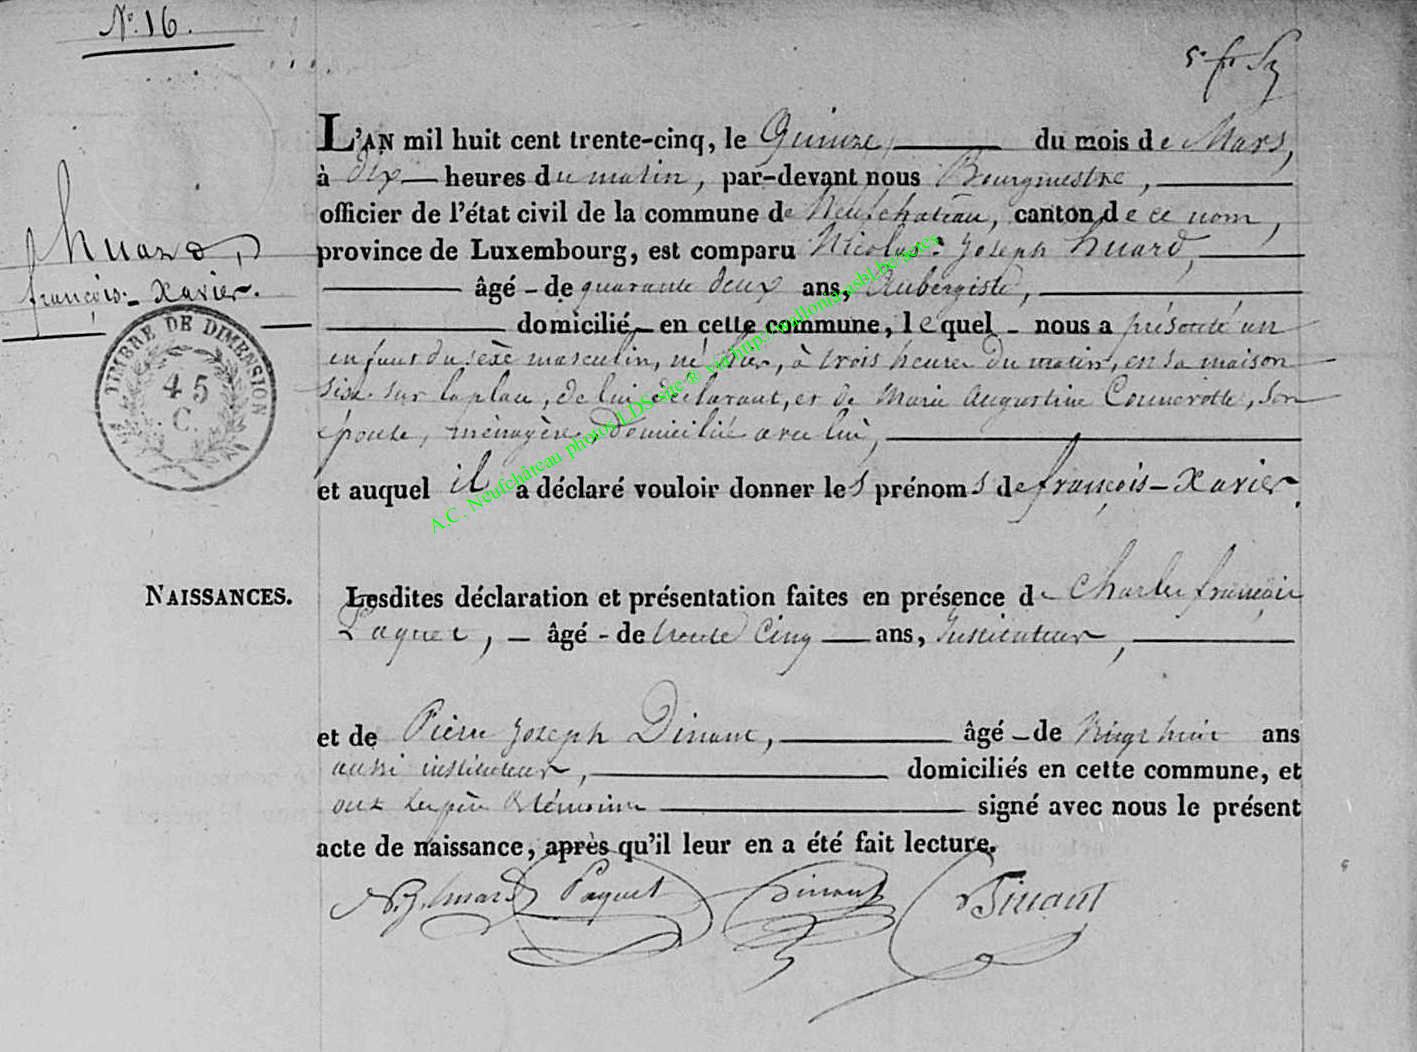 N.° 16.
L'AN mil huit cent trente-cinq, le Quinze, du mois de Mars,
à dix heures du matin, par-devant nous Bourgmestre,
officier de l'état civil de la commune de Neufchâteau, canton de ce nom,
province de Luxembourg, est comparu Nicolas Joseph huard,
âgé de quarante deux ans, Aubergiste,
domicilié en cette commune, lequel nous a présenté un
enfant du sèxe masculin, né hier, à trois heures du matin, en sa maison
sise sur la place, de lui déclarant, et de Marie Augustine Connerotte, son
épouse, ménagère, domicilié avec lui,
et auquel il a déclaré vouloir donner les prénoms de françois-Xavier.
huard,
françois-Xavier.
TIMBRE DE DIMENSION
45
C.
NAISSANCES.
Lesdites déclaration et présentation faites en présence de Charles françois
Paquet, âgé de trente Cinq ans, Instituteur,
et de Pierre Joseph Dinant, âgé de Vingt huit ans
aussi instituteur, domiciliés en cette commune, et
ont les père & témoins signé avec nous le présent
acte de naissance, après qu'il leur en a été fait lecture.
N. J. huard Paquet Dinant
A.C. Neufchâteau photos LDS site ® via http://wallonia.asbl.be/actes